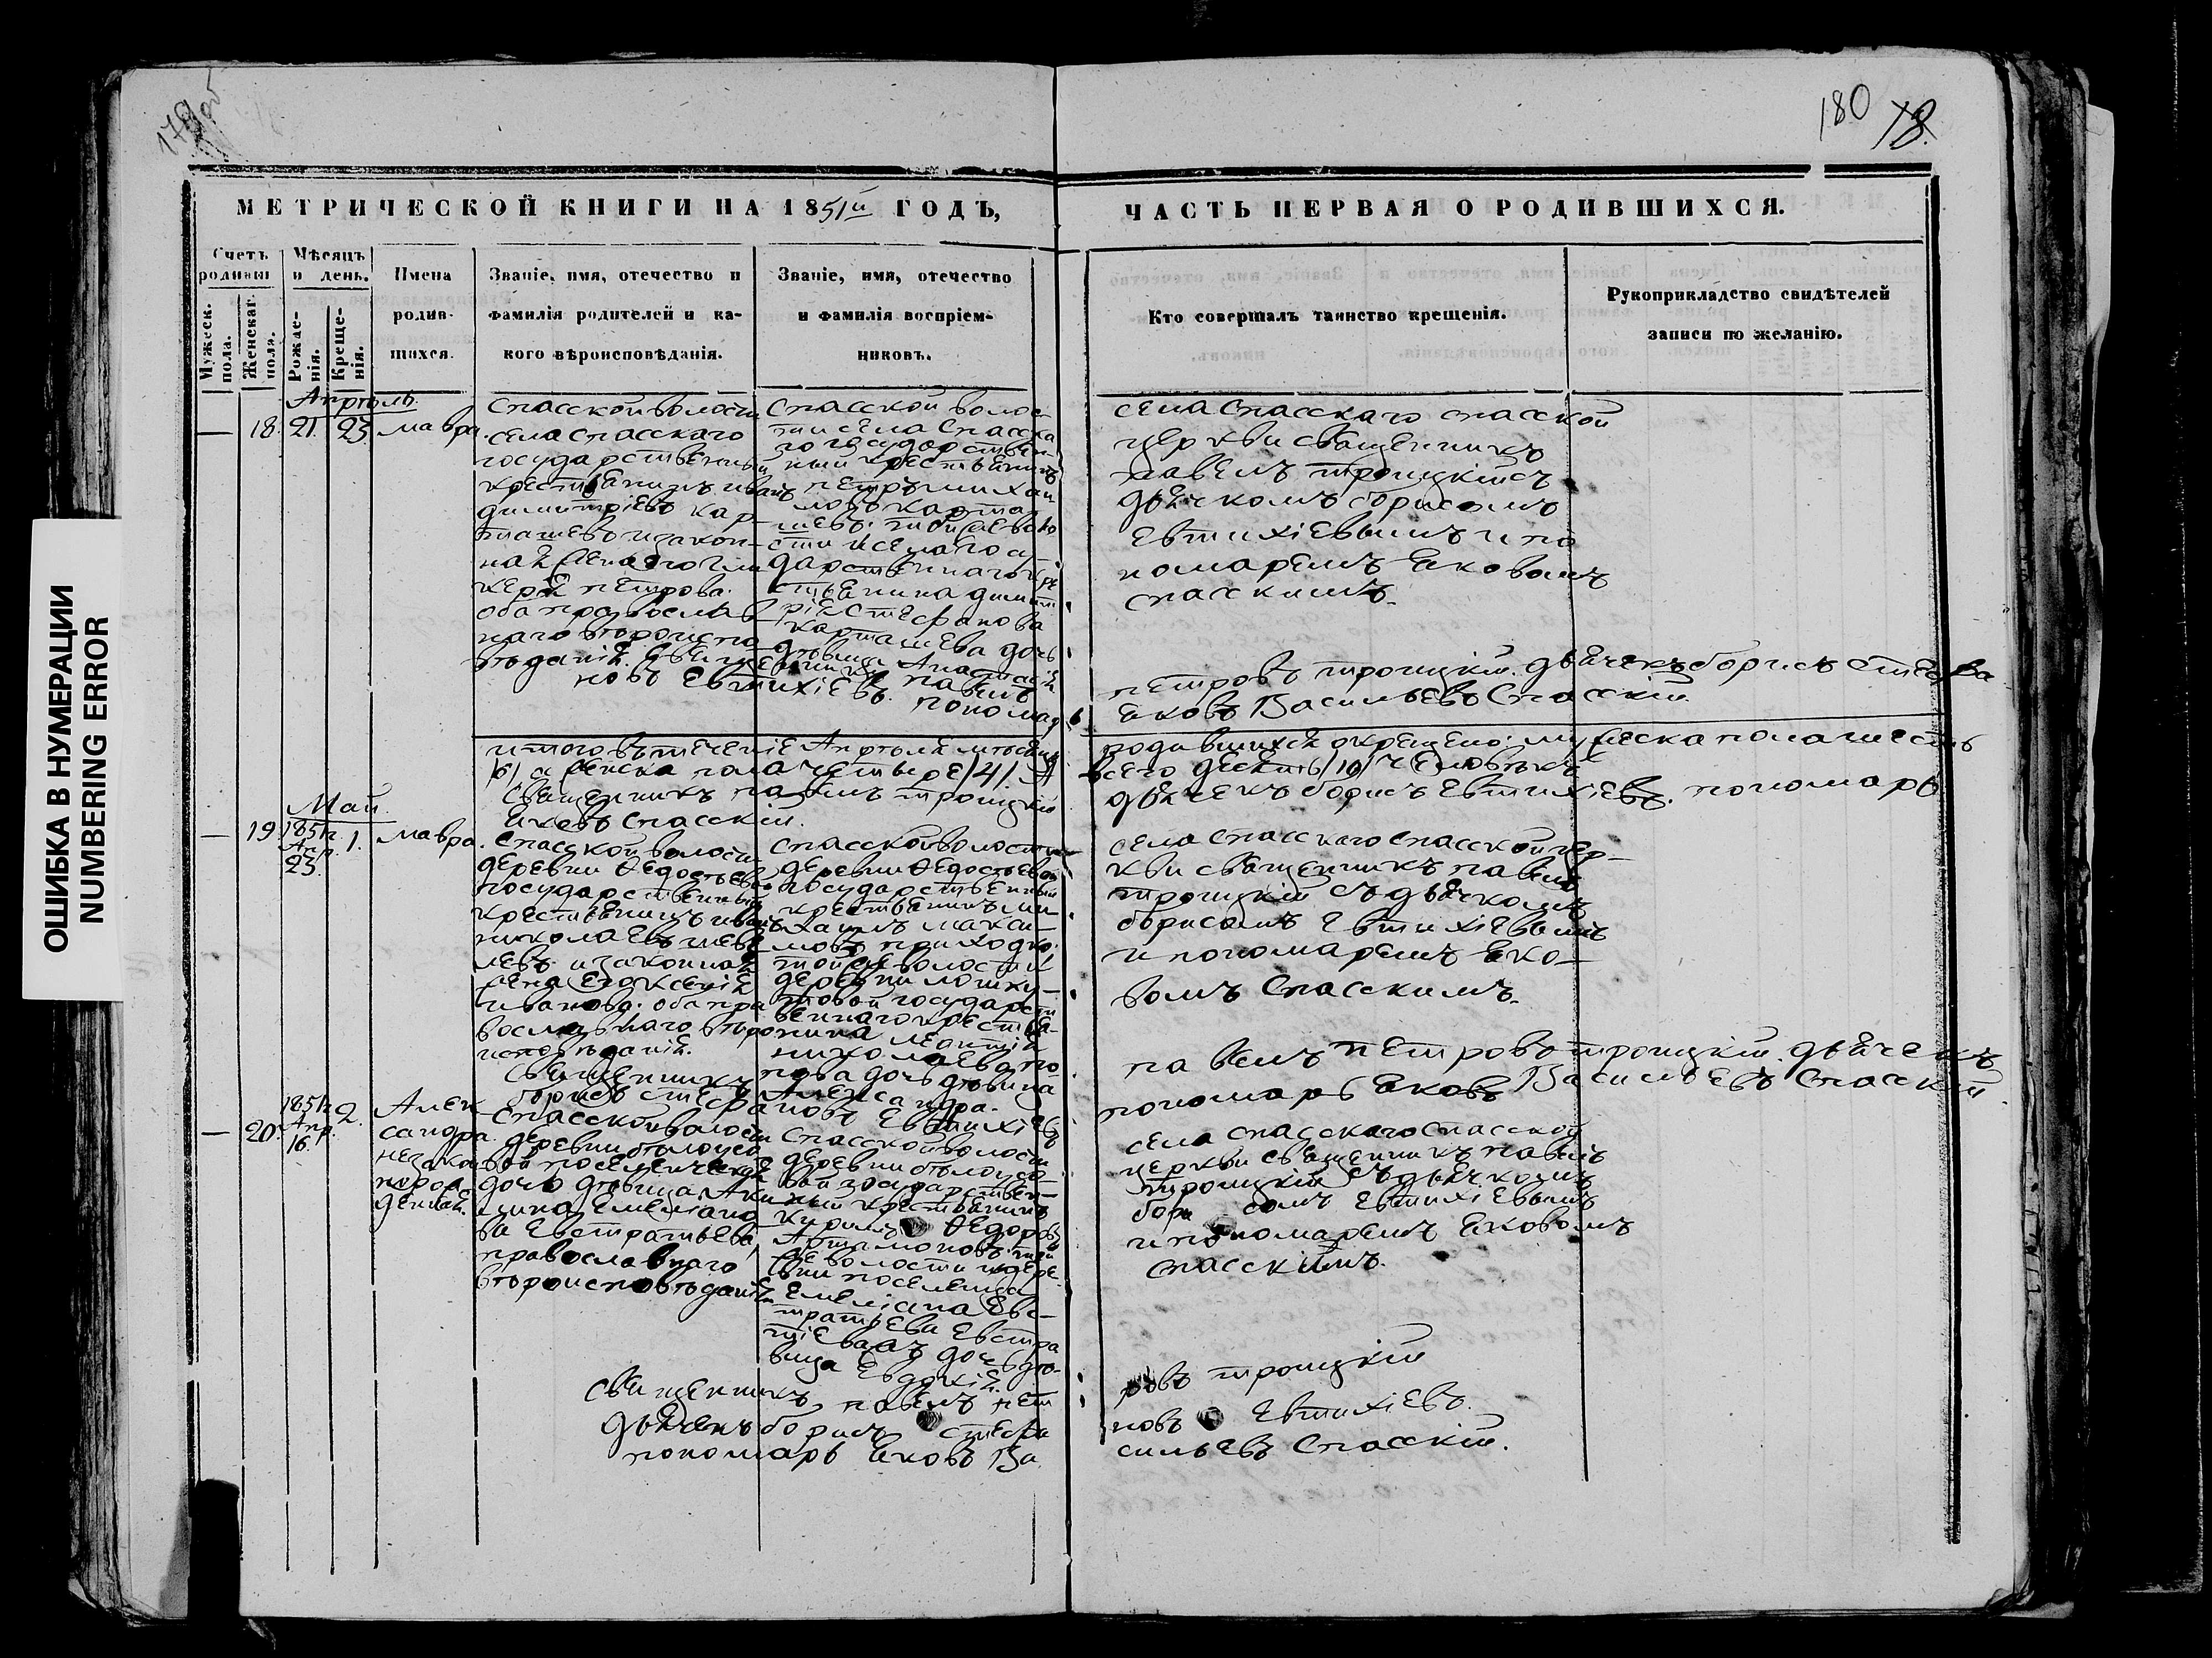 179об
180
18.
ОШИБКА В НУМЕРАЦИИ
NUMBERING ERROR
МЕТРИЧЕСКОЙ КНИГИ НА 1851й ГОДЪ,
ЧАСТЬ ПЕРВАЯ О РОДИВШИХСЯ.
Счетъ родивш
Мужеск. пола.
Женскаг. пола.
Мѣсяцъ и день.
Рожде-
нія.
Креще-
нія.
Имена
родив-
шихся.
Званіе, имя, отечество и
фамилія родителей и ка-
кого вѣроисповѣданія.
Званіе, имя, отечество
и фамилія воспріем-
никовъ.
Кто совершалъ таинство крещенія.
Рукоприкладство свидѣтелей
записи по желанію.
Апрѣль.
— 18. 21. 23. Мавра.
Спасской волости
села Спасскаго
государственный
крестьянинъ Иванъ
Димитріевъ Кар-
ташевъ и закон-
ная жена его Гли-
керія Петрова.
оба православ-
наго вѣроиспо-
вѣданія.
Спасской волос-
ти села Спасска
го государствен-
ный крестьянинъ
Петръ Михаи
ловъ Карта-
шевъ. той же воло
сти и села госу-
дарственнаго кре
стьянина Димит
рія Стефанова
Карташева дочь
дѣвица Анастасія
села Спасскаго Спасской
церкви священникъ
Павелъ Троицкій съ
дьячкомъ Борисомъ
Евтихіевымъ и по
номаремъ Яковомъ
Спасскимъ.
Священникъ Павелъ
Петровъ Троицкій. дьячекъ Борисъ Стефа
новъ Евтихіевъ. пономарь
Яковъ Васильевъ Спасскій.
Итого въ теченіе Апрѣля мѣсяца
родившихся окрещено: мужеска пола шесть
/6/ а женска пола четыре /4/. А
всего десять /10/ человѣкъ
Священникъ Павелъ Троицкій
дьячекъ Борисъ Евтихіевъ. пономарь
Яковъ Спасскій.
Май.
— 19. 1851г. Апр. 23. 1. Мавра.
Спасской волости
деревни Ѳедосѣево
государственный
крестьянинъ Иванъ
Николаевъ Шеве
левъ и законная
жена его Ксенія
Иванова. оба пра
вославнаго вѣро
исповѣданія.
Спасской волости
деревни Ѳедосѣевой
государственный
крестьянинъ Ми-
хаилъ Макси-
мовъ Приходько.
той же волости
деревни Лошку-
товой государст
веннаго крестья-
нина Леонтія
Николаева По
пова дочь дѣвица
Александра.
села Спасскаго Спасской цер-
кви священникъ Павелъ
Троицкій съ дьячкомъ
Борисомъ Евтихіевымъ
и пономаремъ Яко-
вомъ Спасскимъ.
Священникъ
Павелъ Петровъ Троицкій. дьячекъ
Борисъ Стефановъ Евтихіевъ
пономарь Яковъ Васильевъ Спасскій.
— 20. 1851г. Апр. 16. 2.
Алек
сандра.
незако
норож
денная.
Спасской волости
деревни Бѣлоусо
вой поселенческая
дочь дѣвица Аки
лина Емеліано
ва Евстратьева,
православнаго
вѣроисповѣданія
Спасской волости
деревни Бѣлоусо
вой государствен-
ный крестьянинъ
Кирилъ Ѳедоровъ
Артамоновъ. той
же волости и дере
вни поселенца
Емеліана Евс-
тратьева Евстра
тіева дочь дѣ-
вица Евдокія.
села Спасскаго Спасской
церкви священникъ Павелъ
Троицкій съ дьячкомъ
Борисомъ Евтихіевымъ
и пономаремъ Яковомъ
Спасскимъ.
Священникъ Павелъ Пет
ровъ Троицкій
дьячекъ Борисъ Стефа
новъ Евтихіевъ.
пономарь Яковъ Ва
сильевъ Спасскій.